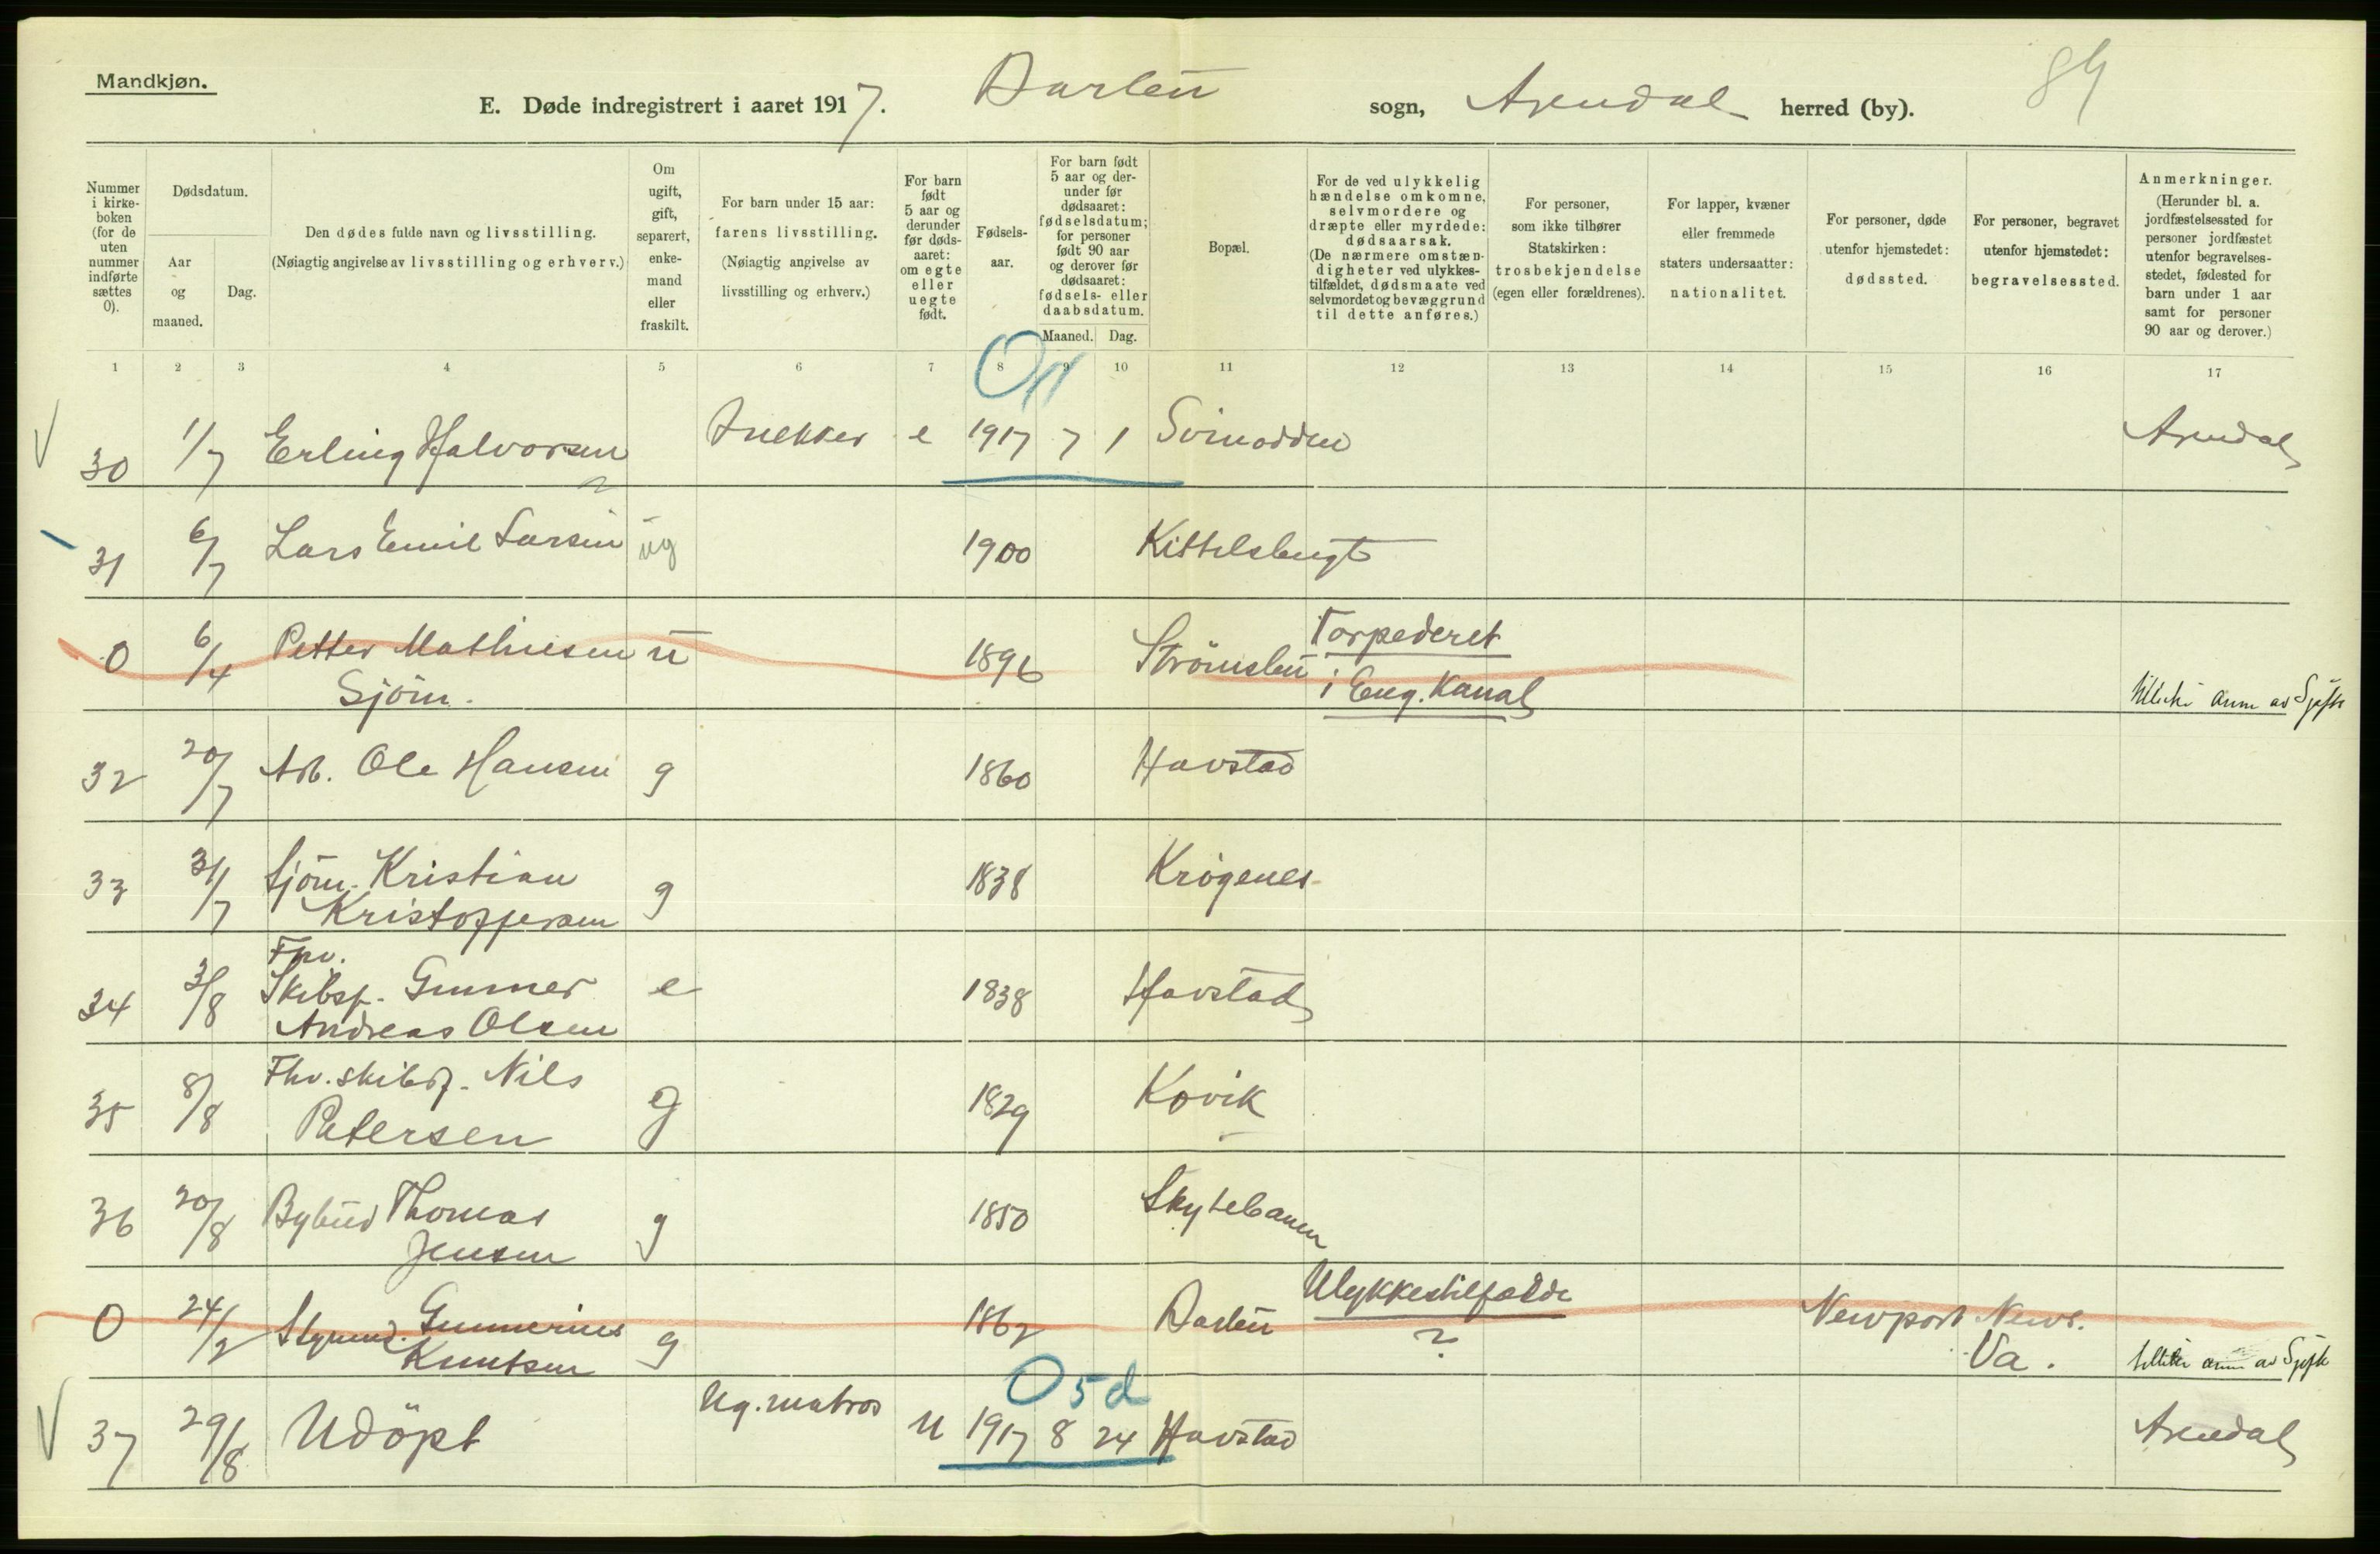 Mandkjøn.
E. Døde indregistrert i aaret 1917. Barbu sogn, Arendal herred (by). 84
Nummer i kirkeboken (for de uten nummer indførte sættes 0).
Dødsdatum.
Aar og maaned.
Dag.
Den dødes fulde navn og livsstilling.
(Nøiagtig angivelse av livsstilling og erhverv.)
Om ugift, gift, separert, enkemand eller fraskilt.
For barn under 15 aar: farens livsstilling.
(Nøiagtig angivelse av livsstilling og erhverv.)
For barn født 5 aar og derunder før dødsaaret: om egte eller uegte født.
Fødselsaar.
For barn født 5 aar og derunder før dødsaaret: fødselsdatum; for personer født 90 aar og derover før dødsaaret: fødsels- eller daabsdatum.
Maaned. Dag.
Bopæl.
For de ved ulykkelig hændelse omkomne, selvmordere og dræpte eller myrdede: dødsaarsak.
(De nærmere omstændigheter ved ulykkestilfældet, dødsmaate ved selvmordet og bevæggrund til dette anføres.)
For personer, som ikke tilhører Statskirken: trosbekjendelse (egen eller forældrenes).
For lapper, kvæner eller fremmede staters undersaatter: nationalitet.
For personer, døde utenfor hjemstedet: dødssted.
For personer, begravet utenfor hjemstedet: begravelsessted.
Anmerkninger.
(Herunder bl. a. jordfæstelsessted for personer jordfæstet utenfor begravelsesstedet, fødested for barn under 1 aar samt for personer 90 aar og derover.)
1 2 3 4 5 6 7 8 9 10 11 12 13 14 15 16 17
30 1/7 Erling Halvorsen Snekker e 1917 7 1 Svinodden Arendal
31 6/7 Lars Emil Larsen ug 1900 Kittelsbugt
0 6/4 Petter Mathiesen u 1896 Strömsbu Torpederet
Sjöm. i Eng. Kanal anm av Sjøfk
32 20/7 Arb. Ole Hansen g 1860 Havstad
33 31/7 Sjöm. Kristian g 1838 Krögenes
Kristoffersen
Fhv.
34 3/8 Skibsf. Gunner e 1838 Havstad
Andreas Olsen
35 8/8 Fhv. skibsf. Nils g 1829 Kovik
Petersen
36 20/8 Bybud Thomas g 1850 Skytebanen
Jensen
0 24/2 Styrmd. Gunnerius g 1862 Barbu Ulykkestilfælde Newport News.
Knutsen ? Va. anm av Sjøfk
0 5 d
37 29/8 Udöpt Ug. matros u 1917 8 24 Havstad Arendal